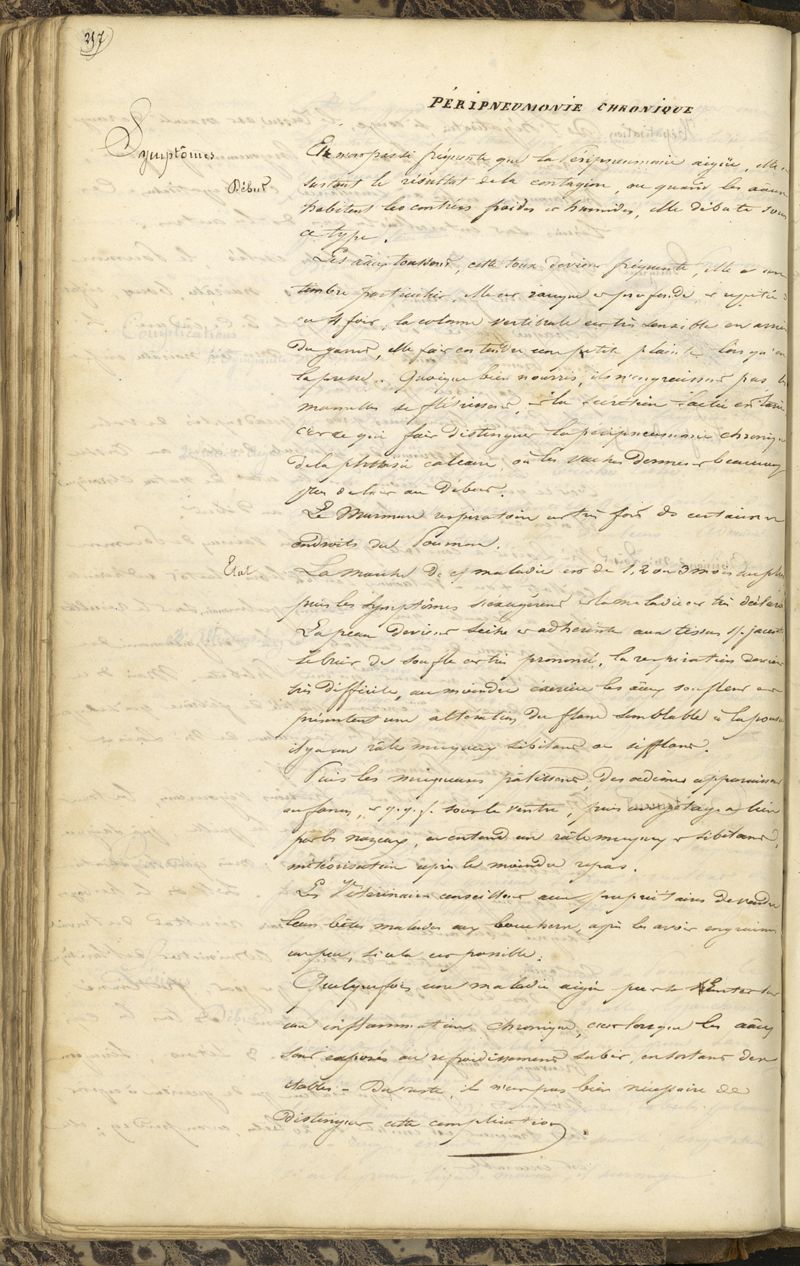 217
PÉRIPNEUMONIE CHRONIQUE
Symptômes
Elle n'est pas si fréquente que la Péripneumonie aigüe, elle
Début
surtout le résultat de la contagion, ou quand les
habitent les contrées froides et humides, elle débute sous
ce type.
Les toussent, cette toux devient fréquente, elle a un
timbre particulier, elle est rauque et profonde et répétée
ou 4 fois, la colonne vertébrale est très sensible en
du garrot, elle fait entendre une petite plainte lorsqu'on
la presse. Quoique bien nourris, ils n'engraissent pas les
mamelles se flétrissent, et la sécrétion lactée est
c'est ce qui fait distinguer la péripneumonie chronique
de la phthisie calcaire, où les vaches donnent beaucoup
plus de lait au début.
Le Murmure respiratoire est très fort de certains
endroits du Poumon.
État
La marche de maladie est de 1, 2 ou 3 mois au plus
puis les symptômes s'exagèrent et la maladie est très
La peau devient sèche et adhérente aux tissus
Le bruit de souffle est très prononcé, la respiration devient
très difficile, au moindre exercice les souflent et
présentent une altération du flanc semblable à la pousse
il y a un râle muqueux sibilant ou sifflant.
Puis les muqueuses pâlissent, des oedèmes apparaissent
au fanon, et q.q.f. sous le ventre, puis a lieu
par les nazeaux, on entend un râle muqueux et sibilant,
météorisation après le moindre repas.
Les Vétérinaires conseillent aux propriétaires de vendre
leurs bêtes malades aux bouchers, après les avoir engraissé
un peu, si cela est possible.
Quelquefois une maladie aigüe peut s'enter sur
une inflammation chronique, c'est lorsque les
sont exposés au refroidissement subit, en sortant des
étables - Du reste, il n'est pas bien nécessaire de
distinguer cette complication.